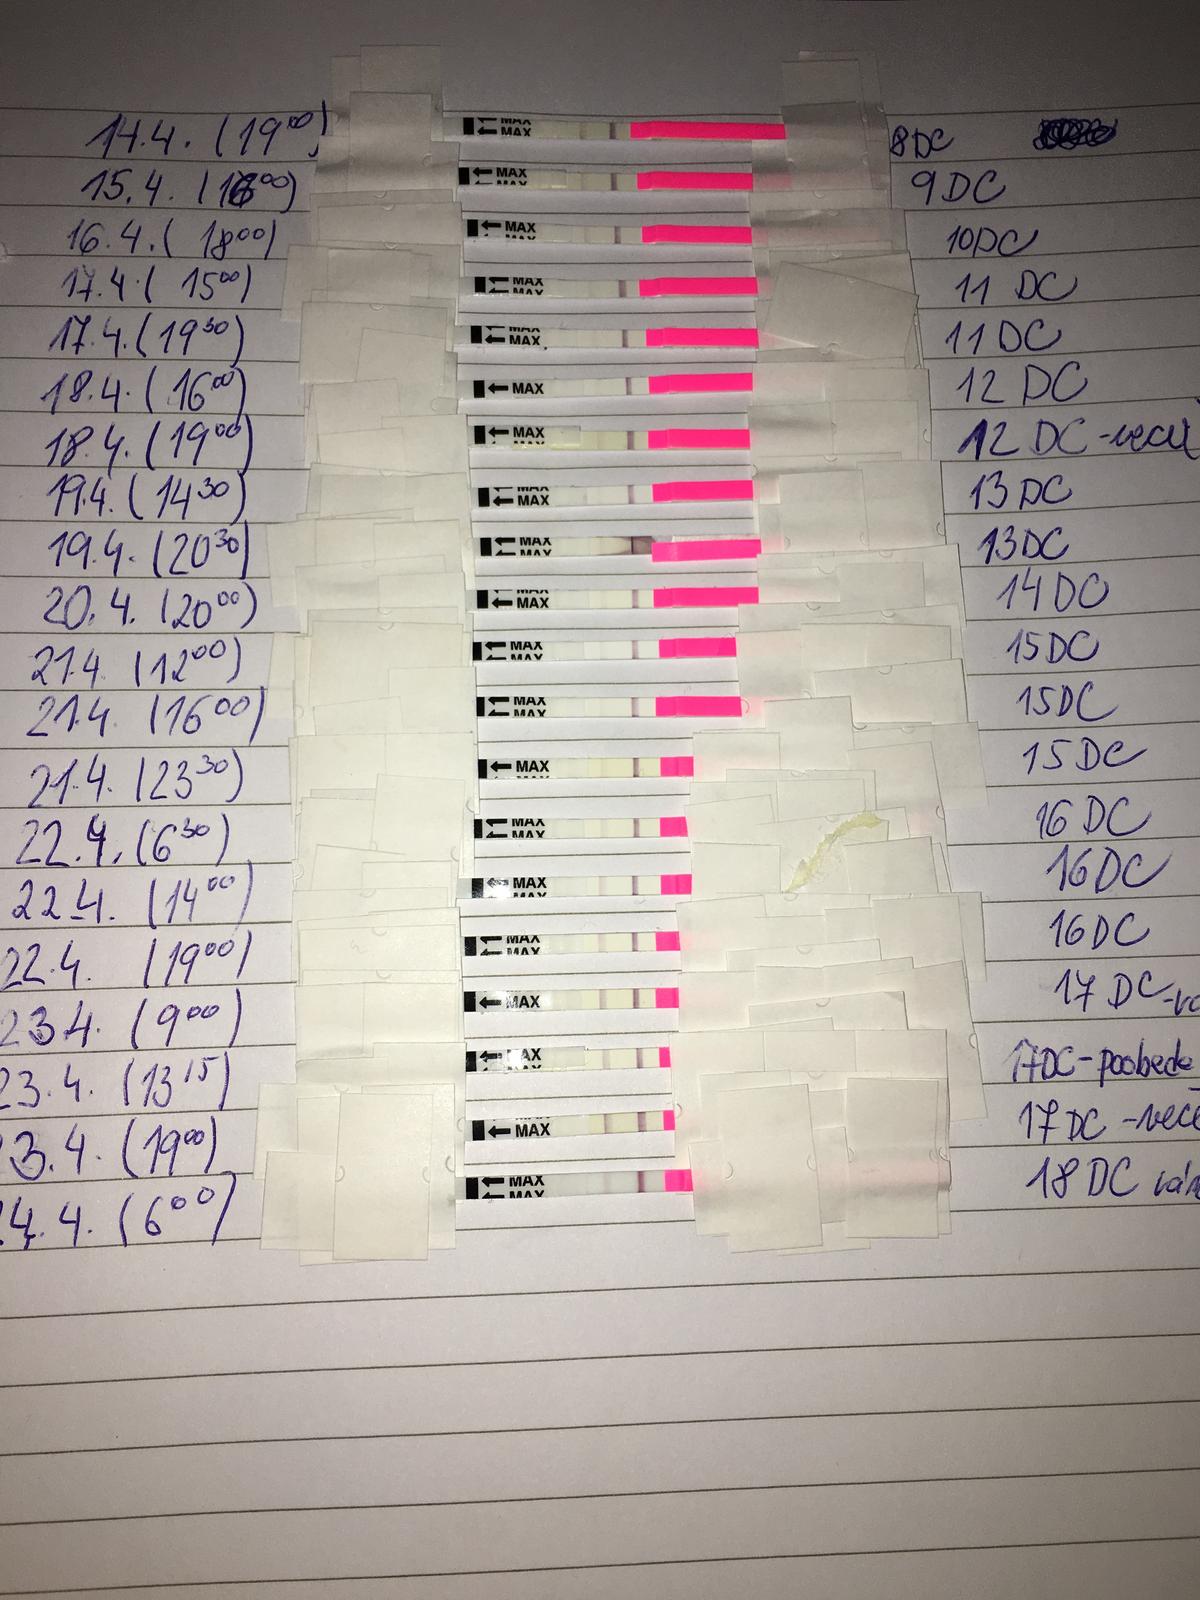 14.4. (19⁰⁰) MAX MAX 8DC
15.4. MAX MAX 9DC
16.4. (18⁰⁰) MAX 10DC
17.4 (15⁰⁰) MAX MAX 11 DC
17.4. (19³⁰) MAX MAX 11 DC
18.4. (16⁰⁰) MAX 12 DC
18.4. (19⁰⁰) MAX 12 DC
19.4. (14³⁰) MAX MAX 13DC
19.4. (20³⁰) MAX MAX 13DC
20.4. (20⁰⁰) MAX MAX 14DC
21.4. (12⁰⁰) MAX MAX 15DC
21.4. (16⁰⁰) MAX MAX 15DC
21.4. (23³⁰) MAX 15 DC
22.4. (6³⁰) MAX MAX 16 DC
22.4. (14⁰⁰) MAX 16DC
22.4. (19⁰⁰) MAX MAX 16DC
23.4. (9⁰⁰) MAX 17 DC
23.4. (13¹⁵) MAX 17DC-poobede
3.4. (19⁰⁰) MAX 17 DC
4.4. (6⁰⁰) MAX MAX 18 DC